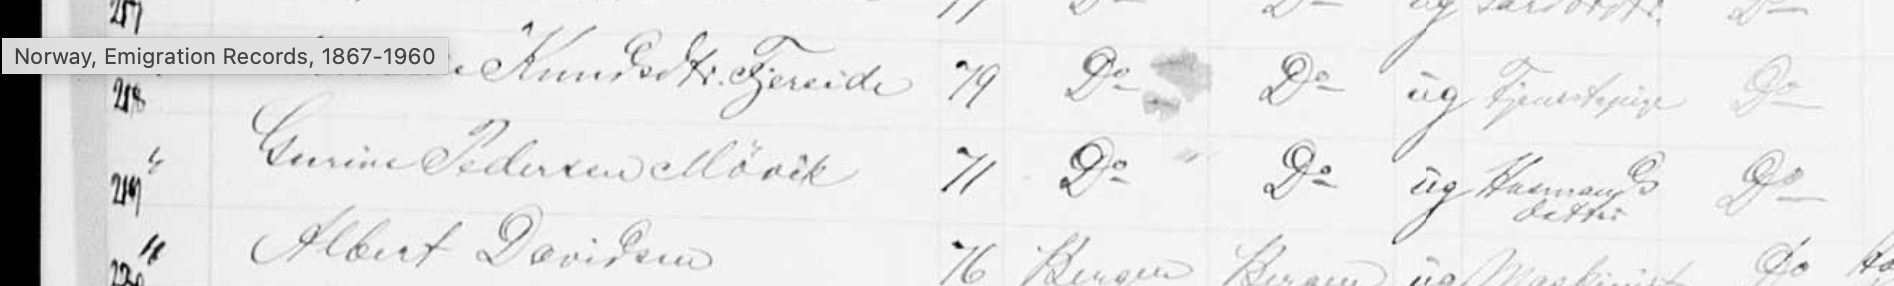 217 77 Do Do ug
Norway, Emigration Records, 1867-1960
218 Knudsdtr. Fjereide 79 Do Do ug Tjenestepige Do
219 " Gurine Pedersen Mövik 71 Do Do ug Husmands Do
datter
220 " Albert Davidsen 76 Bergen Bergen ug Maskinist Do